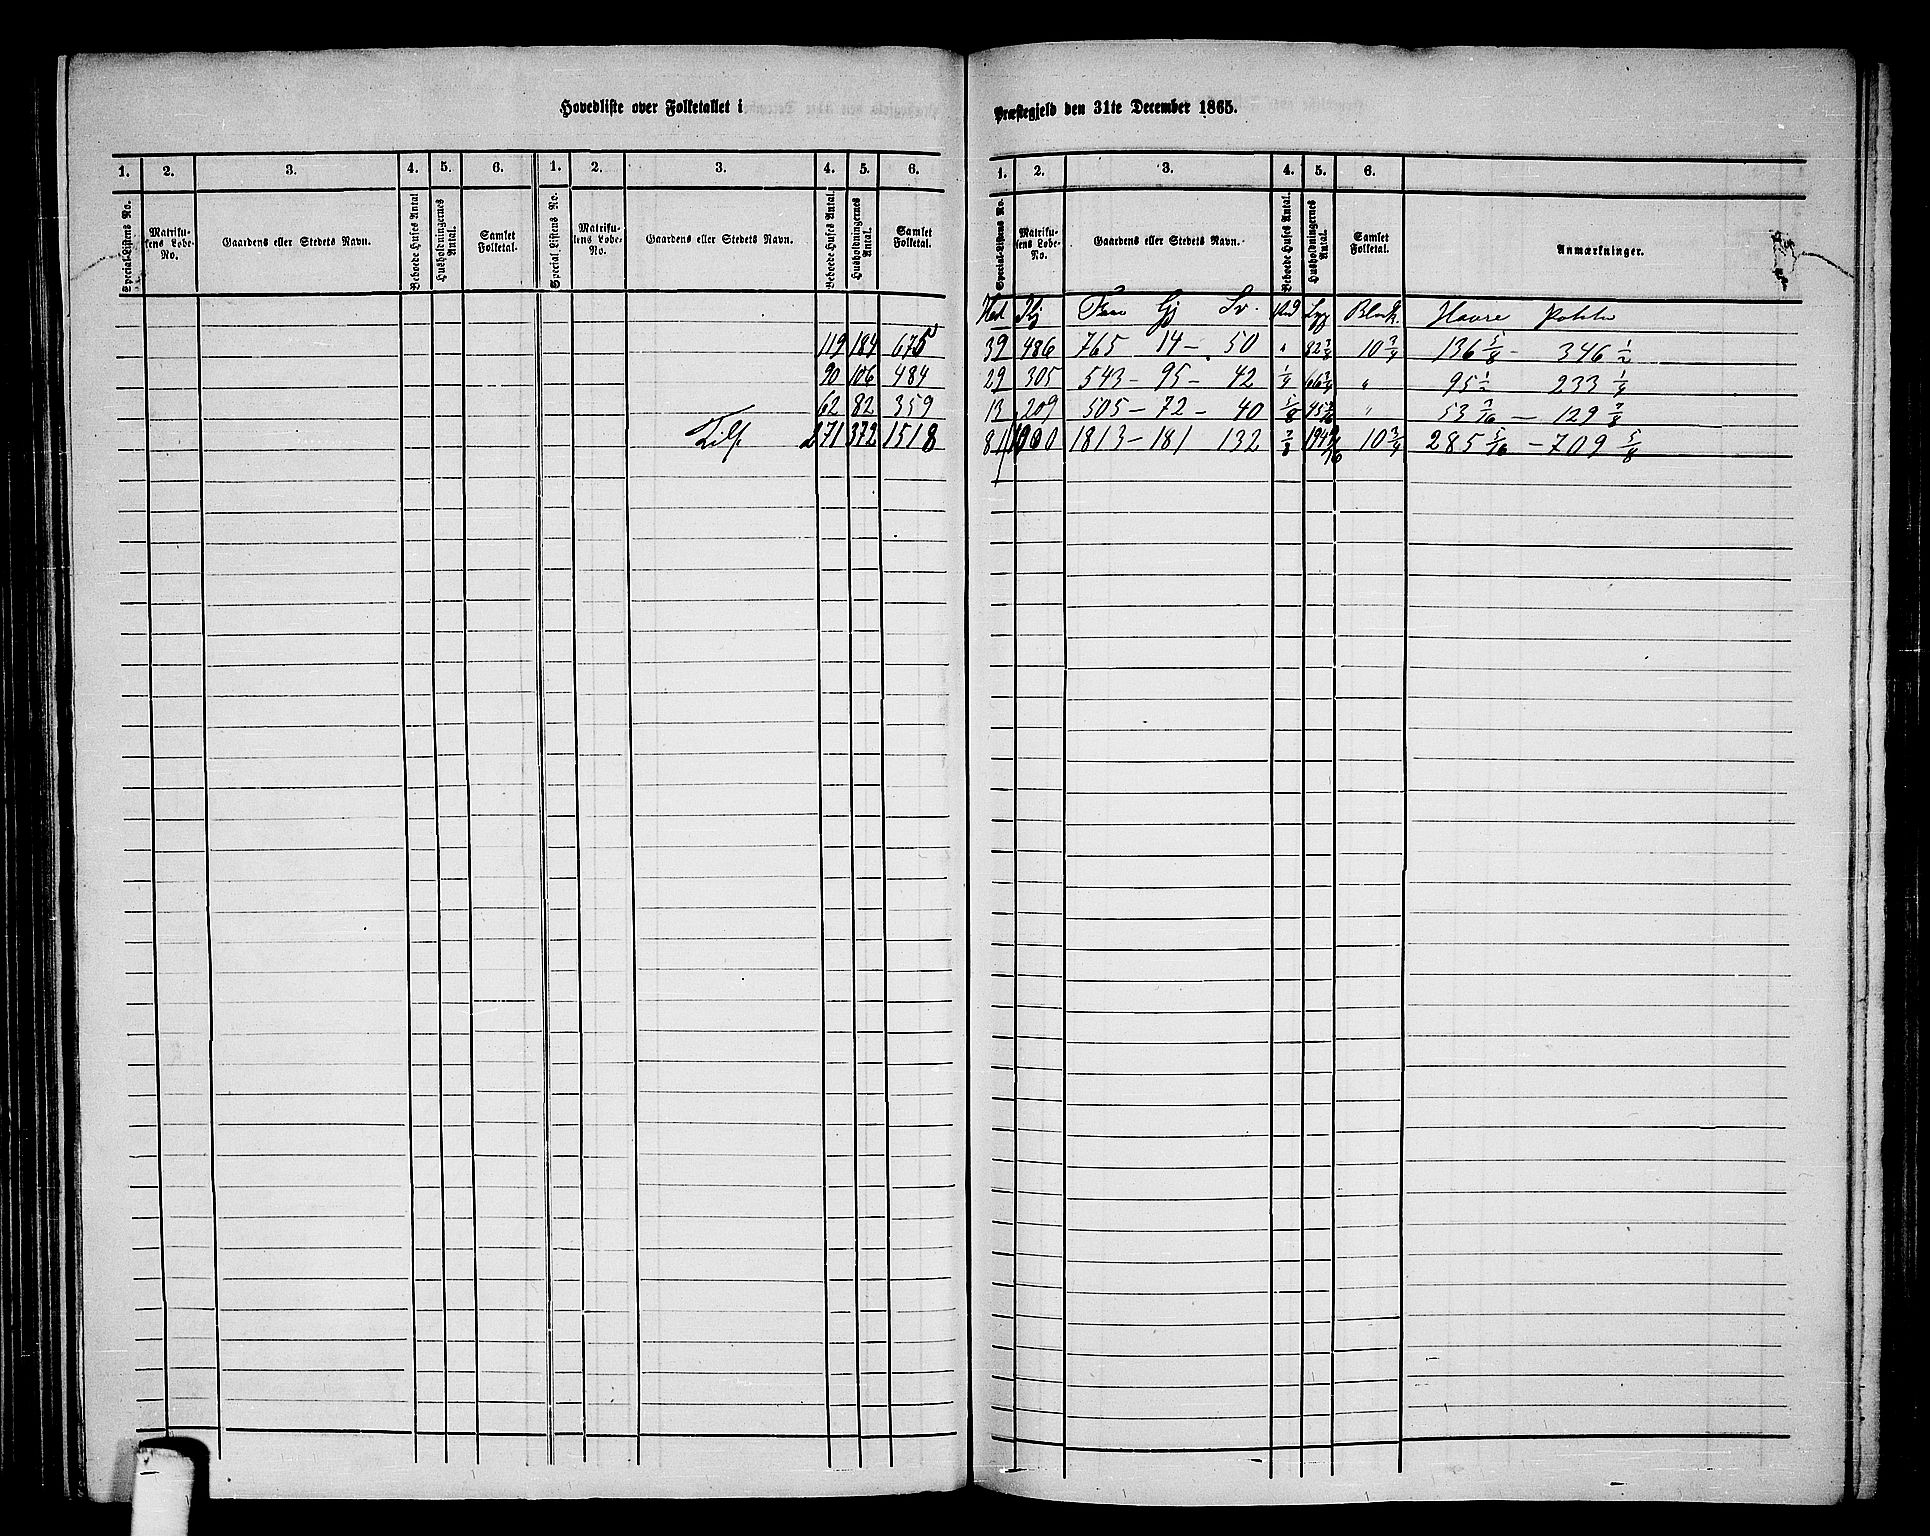 Hovedliste over Folketallet i
1. 2. 3. 4. 5. 6. 1. 2. 3. 4. 5. 6.
Special-Listens No. Matrikulens Løbe-No. Gaardens eller Stedets Navn. Beboede Huses Antal Husholdningernes Antal. Samlet Folketal. Special Listens No. Matrikulens Løbe-No. Gaardens eller Stedets Navn. Beboede Huses Antal. Husholdningernes Antal. Samlet Folketal.
119 184 675
90 106 484
62 82 359
Tils 271 372 1518
Præstegjeld den 31te December 1865.
1. 2. 3. 4. 5. 6.
Special-Listens No. Matrikulens Løbe-No. Gaardens eller Stedets Navn. Beboede Huses Antal. Husholdningernes Antal. Samlet Folketal. Anmærkninger.
Hest Kj Faar Gj Sv. Byg Blank. Havre Potete
39 486 765 14 - 50 " 82 7/8 10 3/4 136 5/8 - 346 1/2
29 305 543 - 95 - 42 1/4 66 3/4 " 95 1/2 233 1/4
13 209 505 - 72 - 40 5/8 " 53 3/16 - 129 7/8
81 1000 1813 - 181 132 7/8 10 3/4 285 5/16 - 709 5/8